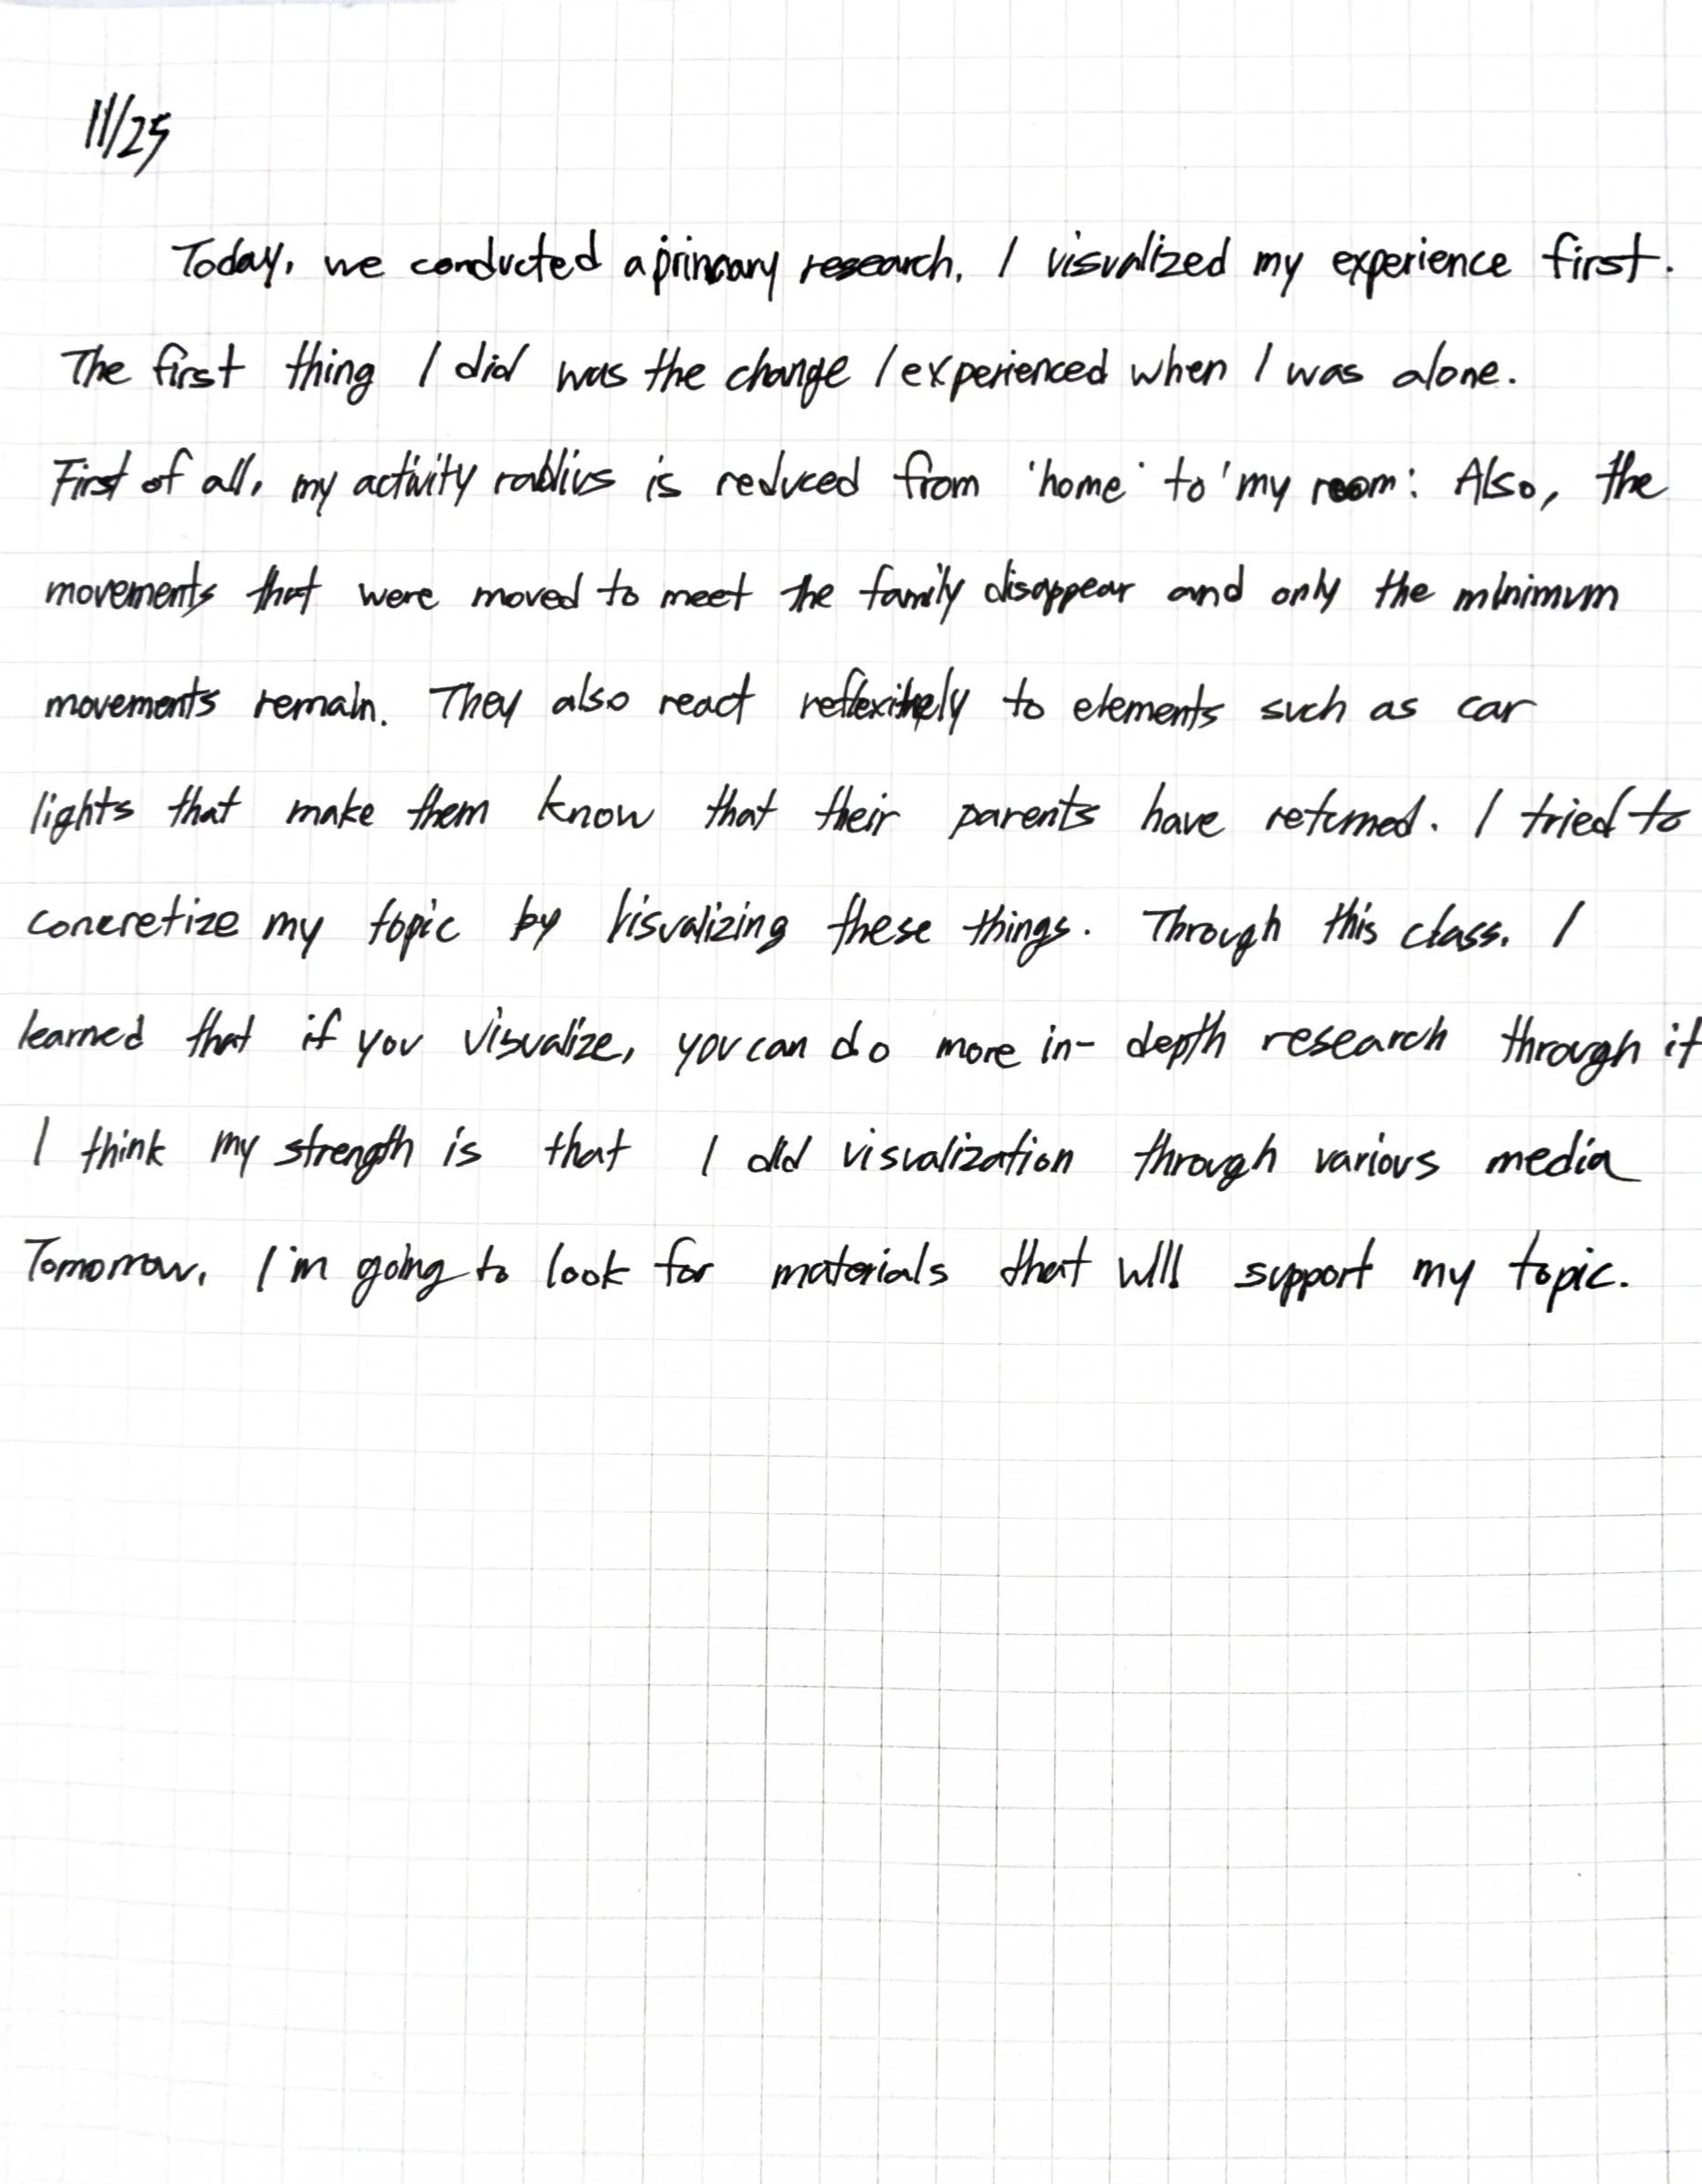 11/25
Today, we conducted a primary research, I visualized my experience first.
The first thing I did was the change I experienced when I was alone.
First of all, my activity radius is reduced from 'home' to 'my room'. Also, the
movements that were moved to meet the family disappear and only the minimum
movements remain. They also react reflexively to elements such as car
lights that make them know that their parents have returned. I tried to
concretize my topic by visualizing these things. Through this class, I
learned that if you visualize, you can do more in-depth research through it
I think my strength is that I did visualization through various media
Tomorrow, I'm going to look for materials that will support my topic.